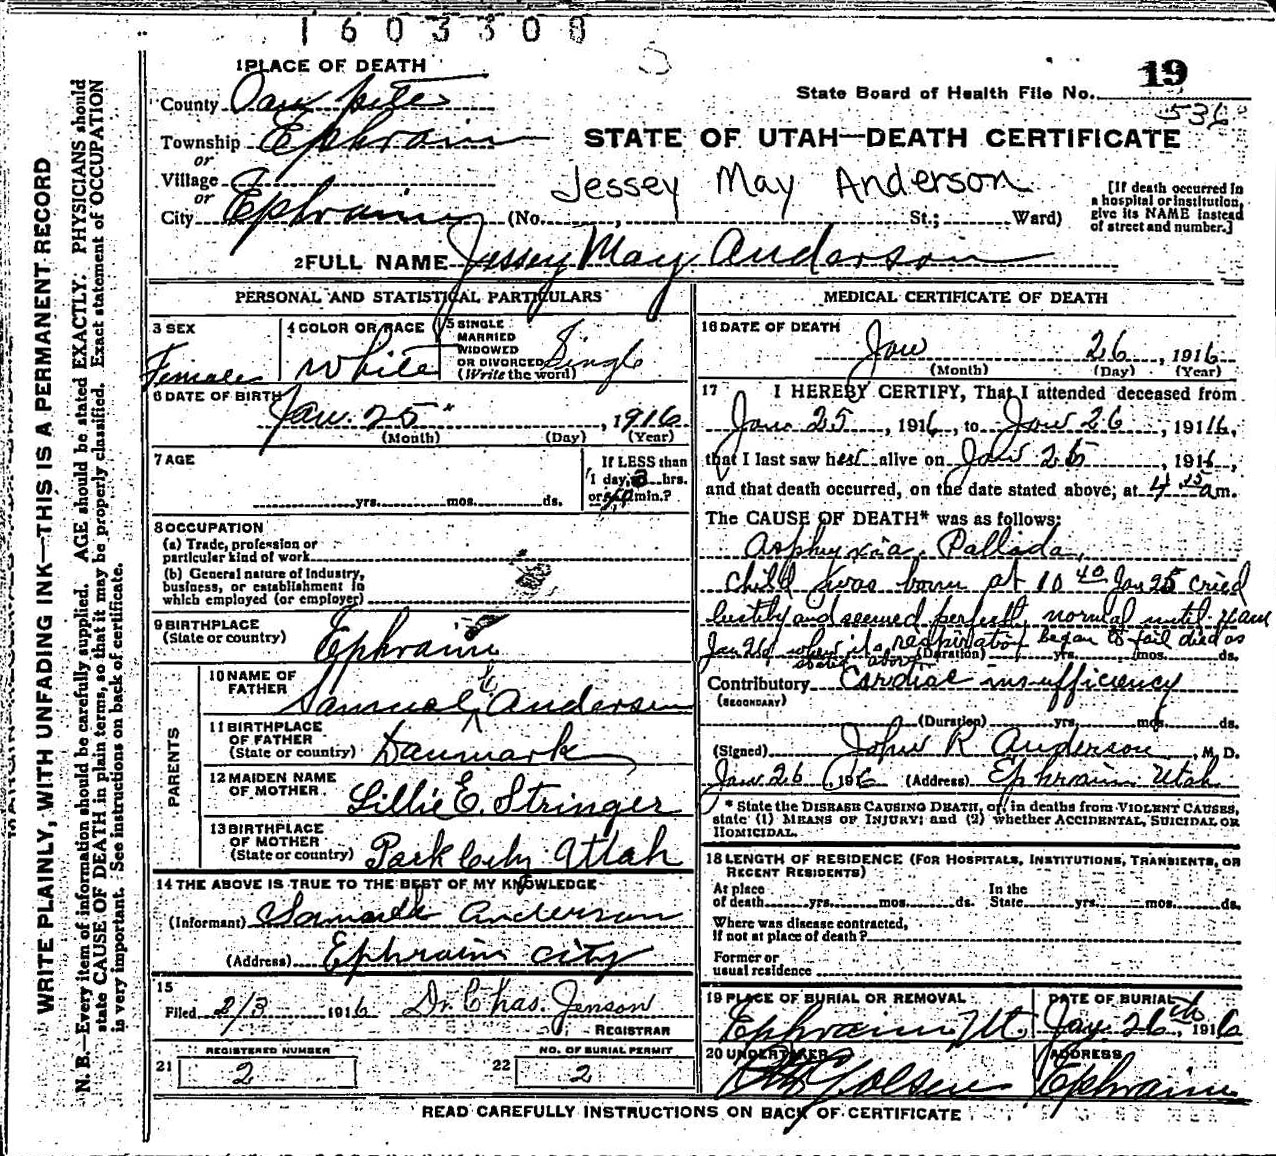 1603308
1 PLACE OF DEATH
19
State Board of Health File No.
536
County San pete
Township Ephraim
STATE OF UTAH—DEATH CERTIFICATE
or
Village
or
Jessey May Anderson
City Ephraim (No. , St.; Ward)
[If death occurred in
a hospital or institution,
give its NAME instead
of street and number.]
2 FULL NAME Jessey May Anderson
PERSONAL AND STATISTICAL PARTICULARS
3 SEX
Female
4 COLOR OR RACE
White
5 SINGLE
MARRIED
WIDOWED
OR DIVORCED
(Write the word)
Single
6 DATE OF BIRTH
Jan. 25 , 1916
(Month) (Day) (Year)
7 AGE
yrs. mos. ds.
If LESS than
1 day, hrs.
or min.?
8 OCCUPATION
(a) Trade, profession or
particular kind of work
(b) General nature of Industry,
business, or establishment in
which employed (or employer)
9 BIRTHPLACE
(State or country)
Ephraim
PARENTS
10 NAME OF
FATHER
Samuel C Anderson
11 BIRTHPLACE
OF FATHER
(State or country)
Danmark
12 MAIDEN NAME
OF MOTHER
Lillie E. Stringer
13 BIRTHPLACE
OF MOTHER
(State or country)
Park City Utah
14 THE ABOVE IS TRUE TO THE BEST OF MY KNOWLEDGE
(Informant) Samuel Anderson
(Address) Ephraim City
15
Filed 2/3 1916 Dr Chas. Jenson
REGISTRAR
REGISTERED NUMBER
21 2
NO. OF BURIAL PERMIT
22 2
MEDICAL CERTIFICATE OF DEATH
16 DATE OF DEATH
Jan 26 , 1916
(Month) (Day) (Year)
17 I HEREBY CERTIFY, That I attended deceased from
Jan. 25 , 1916, to Jan 26 , 1916,
that I last saw her alive on Jan 26 , 1916,
and that death occurred, on the date stated above, at 4 25 a m.
The CAUSE OF DEATH* was as follows:
Asphyxia. Pallada
child was born at 10 40 Jan 25 cried
lustily and seemed perfectly normal until 4 am
Jan 26 when its respiration began to fail died as
stated above
(Duration) yrs. mos. ds.
Contributory Cardiac insufficiency
(SECONDARY)
(Duration) yrs. mos. ds.
(Signed) John R Anderson , M. D.
Jan 26, 1916 (Address) Ephraim Utah
* State the DISEASE CAUSING DEATH, or, in deaths from VIOLENT CAUSES,
state (1) MEANS OF INJURY; and (2) whether ACCIDENTAL, SUICIDAL OR
HOMICIDAL.
18 LENGTH OF RESIDENCE (FOR HOSPITALS, INSTITUTIONS, TRANSIENTS, OR
RECENT RESIDENTS)
At place
of death yrs. mos. ds.
In the
State yrs. mos. ds.
Where was disease contracted,
if not at place of death?
Former or
usual residence
19 PLACE OF BURIAL OR REMOVAL
Ephraim Ut.
DATE OF BURIAL
Jan. 26th, 1916
20 UNDERTAKER
Olsen
ADDRESS
Ephraim
READ CAREFULLY INSTRUCTIONS ON BACK OF CERTIFICATE
WRITE PLAINLY, WITH UNFADING INK—THIS IS A PERMANENT RECORD
N. B.—Every item of information should be carefully supplied. AGE should be stated EXACTLY. PHYSICIANS should
state CAUSE OF DEATH in plain terms, so that it may be properly classified. Exact statement of OCCUPATION
is very important. See instructions on back of certificate.